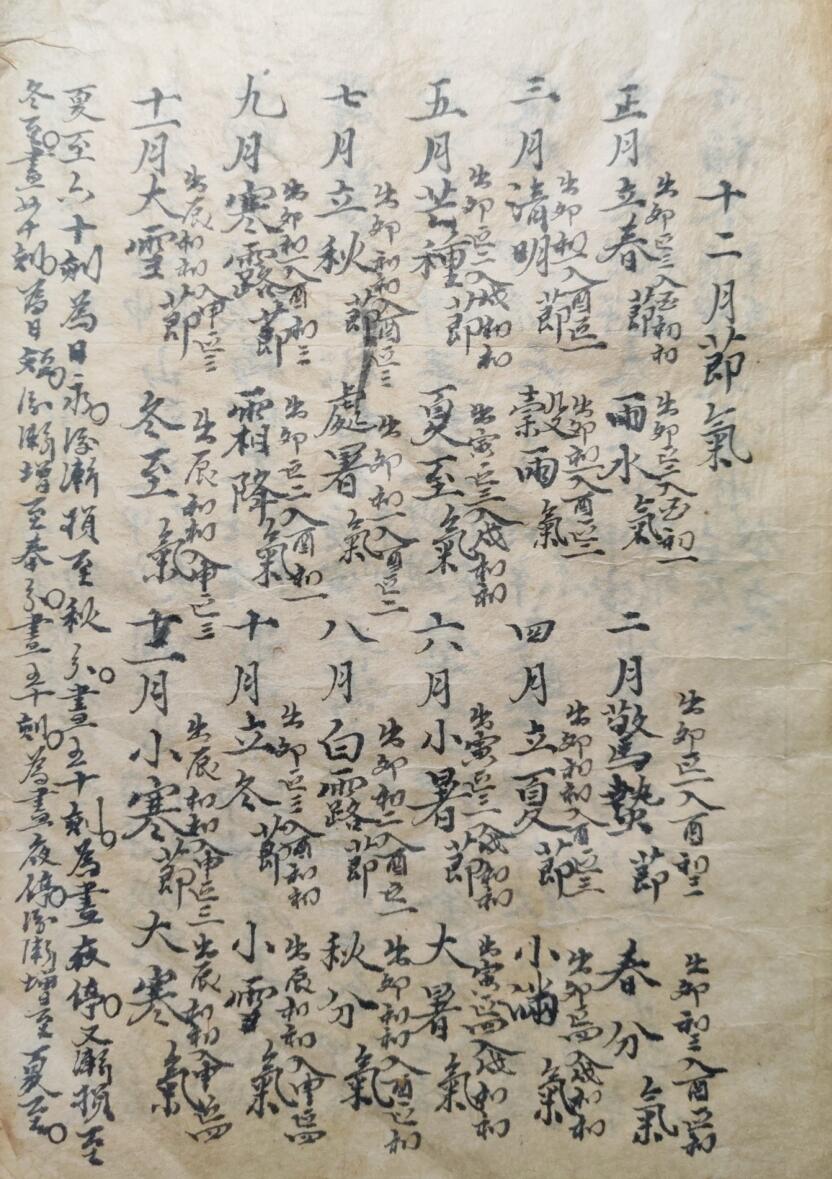 十二月莭氣
正月立春莭 出卯正三入酉初初 雨水氣 出卯正二入酉初一
二月驚蟄莭 出卯正一入酉初二 春分氣 出卯初三入酉正初
三月清明莭 出卯初入酉正一 穀雨氣 出卯初入酉正二
四月立夏莭 出卯初初入酉正三 小滿氣 出卯正四入戌初初
五月芒種莭 出卯正入戌初初 夏至氣 出寅正三入戌初初
六月小暑莭 出寅正三入戌初初 大暑氣 出寅正四入戌初初
七月立秋莭 出卯初初入酉正三 處署氣 出卯初一入酉正二
八月白露莭 出卯初二入酉正一 秋分氣 出卯初初入酉正初
九月寒露莭 出卯初入酉初三 霜降氣 出卯正二入酉初一
十月立冬莭 出卯正三入酉初初 小雪氣 出辰初初入申正四
十一月大雪莭 出辰初初入申正三 冬至氣 出辰初初入申正三
十二月小寒莭 出辰初初入申正三 大寒氣 出辰初初入申正四
夏至六十刻為日永後漸損至秋分晝五十刻為晝夜停又漸損至
冬至晝四十刻為日短後漸增至春分晝五十刻為晝夜停後漸增至夏至